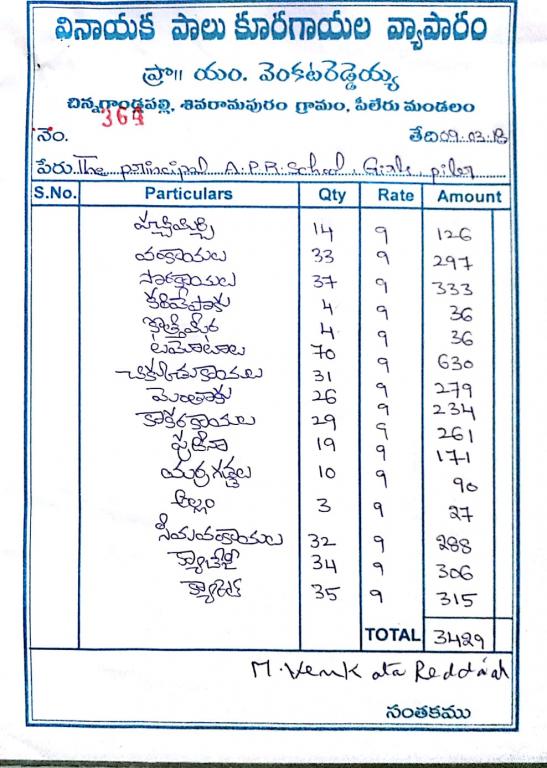 వినాయక పాలు కూరగాయల వ్యాపారం
ప్రొ|| యం. వెంకటరెడ్డెయ్య
చిన్నగాండ్లపల్లి, శివరామపురం గ్రామం, పీలేరు మండలం.
నెం. 364 తేది 09.03.18
పేరు. The principal A.P.R. School, Girls, piler
S.No. Particulars Qty Rate Amount
పచ్చిమిర్చి 14 9 126
వంకాయలు 33 9 297
సొరకాయలు 37 9 333
కరివేపాకు 4 9 36
కొత్తిమీర 4 9 36
టమోటాలు 70 9 630
చిక్కుడుకాయలు 31 9 279
మెంతాకు 26 9 234
కాకరకాయలు 29 9 261
పుదీనా 19 9 171
యర్రగడ్డలు 10 9 90
అల్లం 3 9 27
సీమవంకాయలు 32 9 288
క్యాబేజీ 34 9 306
క్యారెట్ 35 9 315
TOTAL 3429
M. Venkata Reddaiah
సంతకము